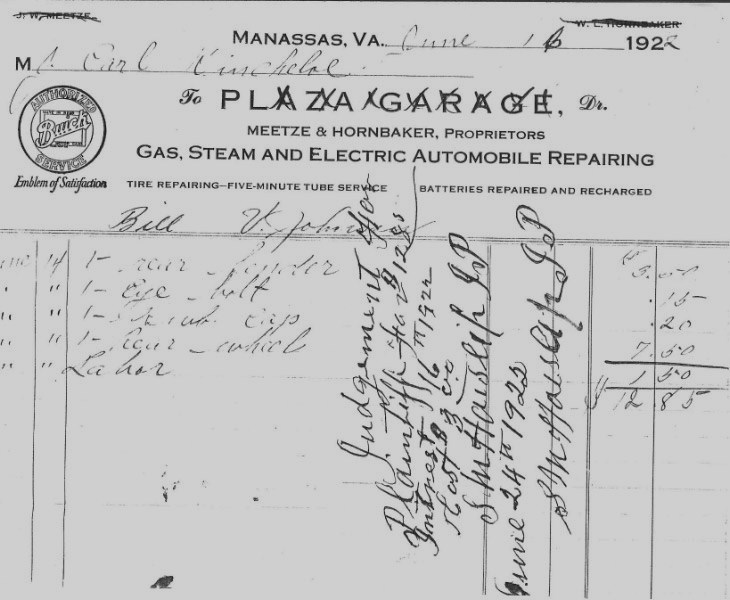 J. W. MEETZE
W. L. HORNBAKER
MANASSAS, VA. June 16 1922
M Carl Kincheloe
To PLAZA GARAGE, Dr.
MEETZE & HORNBAKER, PROPRIETORS
GAS, STEAM AND ELECTRIC AUTOMOBILE REPAIRING
AUTHORIZED
Buick
SERVICE
Emblem of Satisfaction
TIRE REPAIRING—FIVE-MINUTE TUBE SERVICE BATTERIES REPAIRED AND RECHARGED
Bill V. Johnson
June 14 1- rear fender 3.50
" " 1- eye bolt .15
" " 1- cap .20
" " 1- rear wheel 7.50
" " Labor 1.50
$12.85
Judgement for
Plaintiff for $12.85
Intrest 16th 1922
Cost $3.00
J P
June 24th 1922
J P